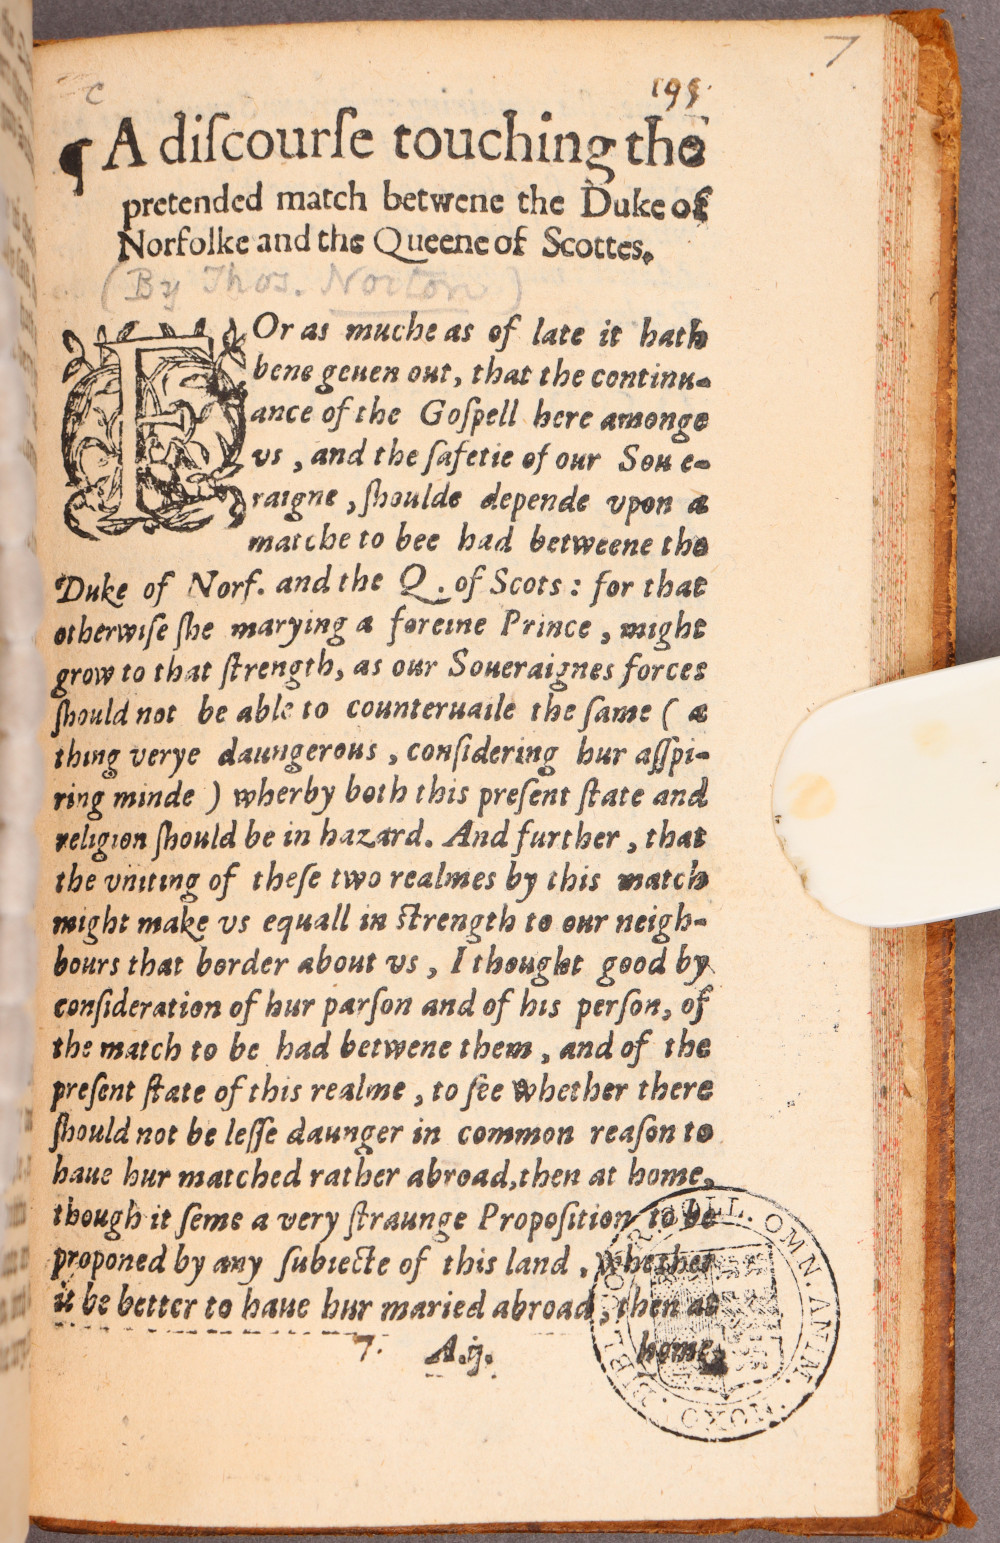 7
c
195.
¶ A diſcourſe touching the
pretended match betwene the Duke of
Norfolke and the Queene of Scottes.
(By Thos. Norton)
FOr as muche as of late it hath
bene geuen out, that the continu-
ance of the Goſpell here amonge
vs , and the ſafetie of our Soue-
raigne , ſhoulde depende vpon a
matche to bee had betweene the
Duke of Norf. and the Q. of Scots : for that
otherwiſe ſhe marying a foreine Prince , might
grow to that ſtrength, as our Soueraignes forces
ſhould not be able to counteruaile the ſame ( a
thing verye daungerous , conſidering hur aſſpi-
ring minde ) wherby both this preſent ſtate and
religion ſhould be in hazard. And further , that
the vniting of theſe two realmes by this match
might make vs equall in ſtrength to our neigh-
bours that border about vs , I thought good by
conſideration of hur parſon and of his perſon, of
the match to be had betwene them , and of the
preſent ſtate of this realme , to ſee whether there
ſhould not be leſſe daunger in common reaſon to
haue hur matched rather abroad,then at home,
though it ſeme a very ſtraunge Propoſition to be
proponed by any ſubiecte of this land , whether
it be better to haue hur maried abroad , then at
7. A.ij. home,
BIBL. COLL. OMN. ANIM. OXON.